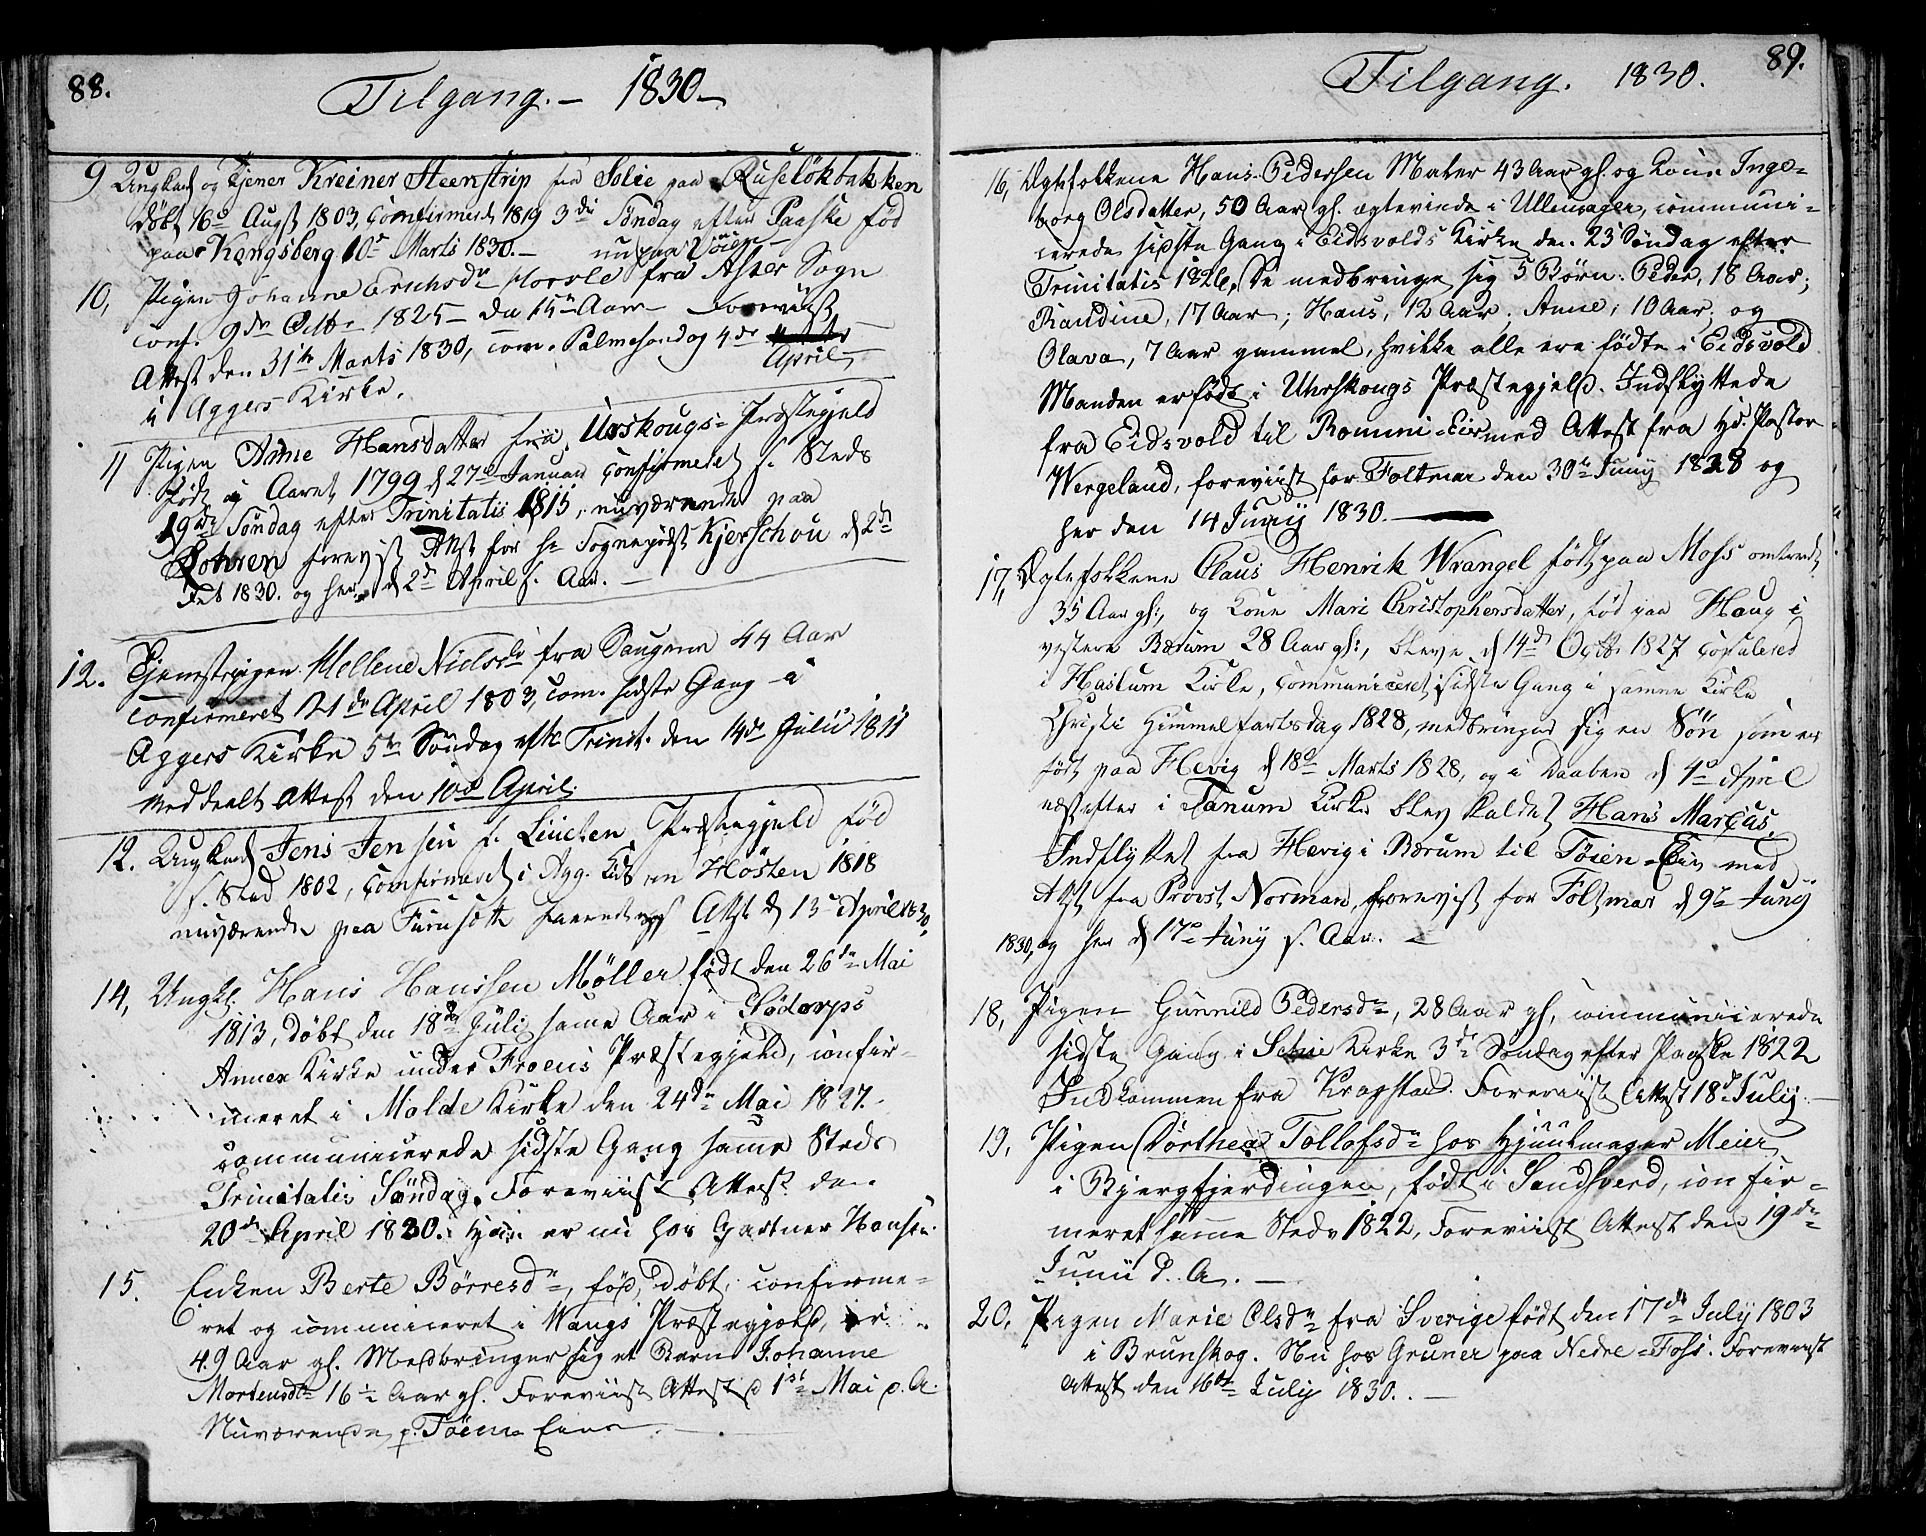 88.
Tilgang. – 1830 –
9 Ungkarl og Tjener Kreiner Steenstrip fra Solie paa Ruseløkbakken
døbt 16d Augst 1803, Confirmeret 1819 3die Søndag efter Paaske fød
paa Kongsberg 10d Marts 1830. – nu paa Töien –
10, Pigen Johanne Erichsdr fra Asker Sogn
conf. 9de Octbr 1825 – da 15 Aar – Foreviist
Attest den 31te Marts 1830, com. Palmesøndag 4de
April,
i Aggers Kirke.
11 Pigen Anne Hansdatter fra Urskougs Præstegjeld
født i Aaret 1799 d 27de Januar Confirmeret s. Steds
19de Søndag efter Trinitatis 1815, nuværende paa
forevist Attst for Hr Sogneprst Kjerschou d 2de
1830. og her d 2de April s. Aar. –
12. Tjenestepigen Mellene Nielsdr fra Saugene 44 Aar
Confirmeret 21de April 1803, com. sidste Gang i
Aggers Kirke 5te Søndag efter Trinit. den 14de Julii 1811
Meddeelt Attest den 10de April.
12. Ungkarl Jens Jensen f. Præstegjeld fød
s. Sted 1802, Confirmeret i Agg. Kirke om Hösten 1818
nuværende paa Furuseth foreviist Attst d 13 April 1830.
14, Ungkl. Hans Hanssen Møller født den 26de Mai
1813, døbt den 18de Juli samme Aar i Södorps
Annex Kirke under Froens Præstegjeld, confir-
meret i Molde Kirke den 24de Mai 1827.
communicerede sidste Gang samme Sted
Trinitatis Søndag. Foreviist Attest den
20de April 1830. Han er nu hos Gartner Hansen.
15. Enken Berte Børresdr, fød, døbt, confirme-
ret og communiceret i Vangs Præstegjeld, er
49 Aar gl. Medbringer sig et Barn Johanne
Mortensdr 16 ½ Aar gl. Foreviist Attest d 1st Mai d. A.
Nuværende p. Töien Eier
89.
Tilgang. 1830.
16, Ægtefolkene Hans Pedersen Mater 43 Aar gl. og Kone Inge-
borg Olsdatter, 50 Aar gl. ægteviede i Ullensager, communi-
cerede sidste Gang i Eidsvolds Kirke den 23 Søndag efter
Trinitatis 1826. De medbringe sig 5 Børn: Peder, 18 Aar;
Randine, 17 Aar; Hans, 12 Aar; Anne, 10 Aar; og
Olava, 7 Aar gammel, hvilke alle ere fødte i Eidsvold
Manden er født i Uhrskougs Præstegjeld. Indflyttede
fra Eidsvold til Rommi-Eir med Attest fra Hr. Pastor
Wergeland, foreviist for Foltmar den 30te Juny 1828 og
her den 14 Juny 1830.
17, Ægtefolkene Claus Henrik Wrangel født paa Moss omtrent
35 Aar gl:, og Kone Mari Christophersdatter, fød paa Haug i
vestere Bærum 28 Aar gl:, bleve d 14de Octb. 1827 Copulered
i Haslum Kirke, Communiceret sidste Gang i samme Kirke
Christi Himmelfartsdag 1828, medbringer sig en Søn som er
født paa Hevig d 18d Marts 1828, og i Daaben d 4d April
næstefter i Tanum Kirke blev kaldet Hans Marcus.
Indflyttet fra Hevig i Bærum til Töien-Eir med
Attst fra Provst Norman, forevist for Foltmar d 9de Juny
1830, og her d 17de Juny s. Aar.
18, Pigen Gunnild Pedersdr, 28 Aar gl, communicerede
sidste Gang i Schie Kirke 3de Søndag efter Paaske 1822
Indkommen fra Kragstad. Foreviist Attest 18d July.
19, Pigen Dorthea Tollofsdr hos Hjuulmager Meier
i Bjergfjerdingen, født i Sandsverd, confir-
meret samme Steds 1822, Foreviist Attest den 19de
Junii d. A. –
20. Pigen Marie Olsdr fra Sverige født den 17de July 1803
i Brunskog. Nu hos Gruner paa Nedre-Foss. Foreviist
Attest den 16de July 1830. –